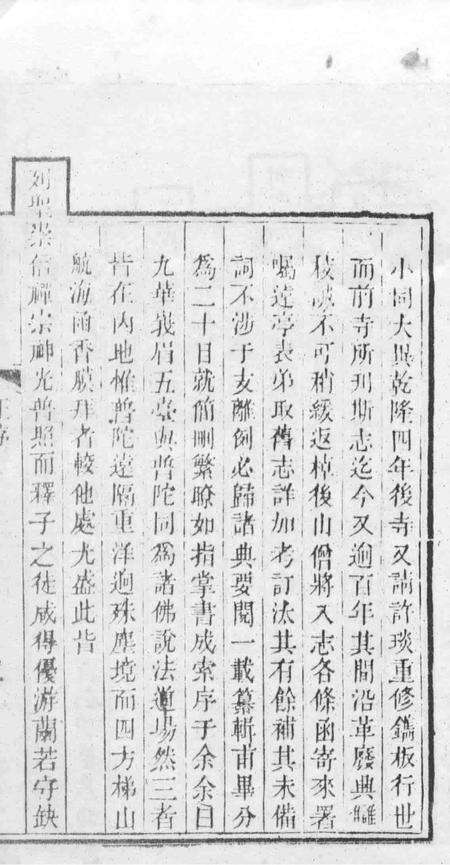 小同大異乾隆四年後寺又請許琰重修鐫板行世
而前寺所刋斯志迄今又逾百年其間沿革廢興
稜誠不可稍緩返棹後山僧將入志各條函寄來署
囑蓮亭表弟取舊志詳加考訂汰其有餘補其未備
詞不涉于支離例必歸諸典要閱一載纂輯甫畢分
為二十目就簡刪繁瞭如指掌書成索序于余余曰
九華峩眉五臺與普陀同為諸佛說法道場然三者
皆在內地惟普陀遠隔重洋逈殊塵境而四方梯山
航海雨香膜拜者較他處尤盛此皆
列聖崇信禪宗神光普照而釋子之徒咸得優游蘭若守缺